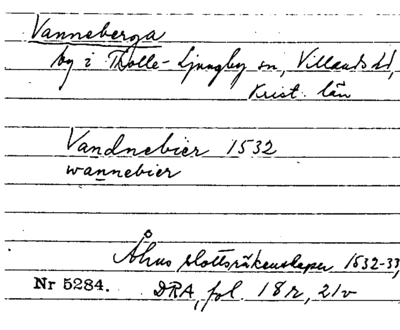 Vanneberga
by i Trolle-Ljungby sn, Villands hd,
Krist. län
Vandnebier 1532
wannebier
Åhus slottsräkenskaper 1532-33,
Nr 5284. DRA, fol. 18r, 21v